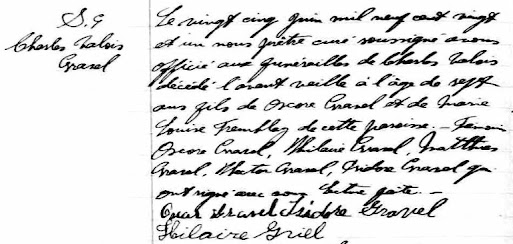 S. 9
Charles Valois
Gravel
Le vingt cinq juin mil neuf cent vingt
et un nous prêtre curé soussigné avons
officié aux funérailles de Charles Valois
décédé l'avant veille à l'âge de sept
ans fils de Oscore Gravel et de Marie
Louise Tremblay de cette paroisse. - Témoins
Oscore Gravel, Hilaire Gravel, Matthias
Gravel, Hector Gravel, Isidore Gravel qui
ont signé avec nous lecture faite. -
Oscar Gravel Isidore Gravel
Hilaire Grvel